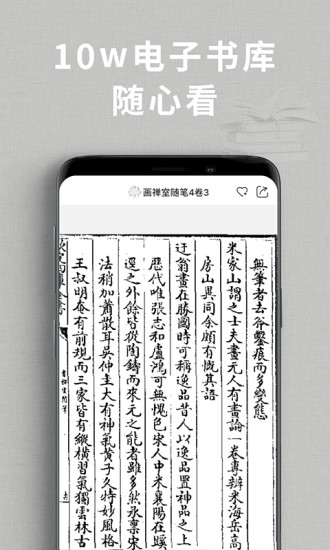 10w电子书库
随心看
画禅室随笔4卷3
無筆者去谷鑿痕而多變態
米家山謂之士夫畫元人有畵論一卷專辯米海岳高
房山異同余頗有慨其語
迂翁畫在勝國時可稱逸品昔人以逸品置神品之上
歴代唯張志和盧鴻可無愧色宋人中米襄陽在蹊
逕之外餘皆從陶鑄而來元之能者雖多然永稟宋
法稍加蕭散耳吴仲圭大有神氣黄子久特妙風格
王叔明奄有前規而三家皆有縱横習氣獨雲林古